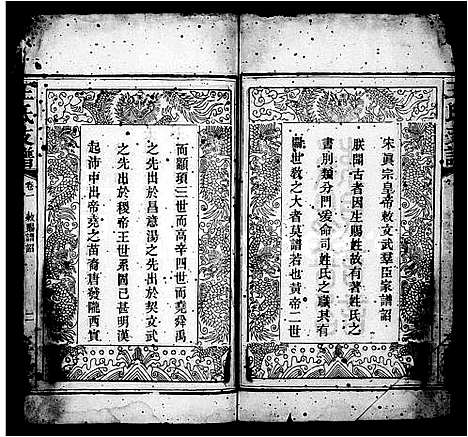 宋眞宗皇帝敕文武羣臣家譜詔
朕聞古者因生賜姓故有著姓氏之
書別類分門爰命司姓氏之職其有
關世教之大者莫譜若也黃帝二世
而顓頊三世而高辛四世而堯舜禹
之先出於昌意湯之先出於契文武
之先出於稷帝王世系固已甚明漢
起沛中出帝堯之苗裔唐發隴西實
氏支譜
卷一
敕賜譜詔